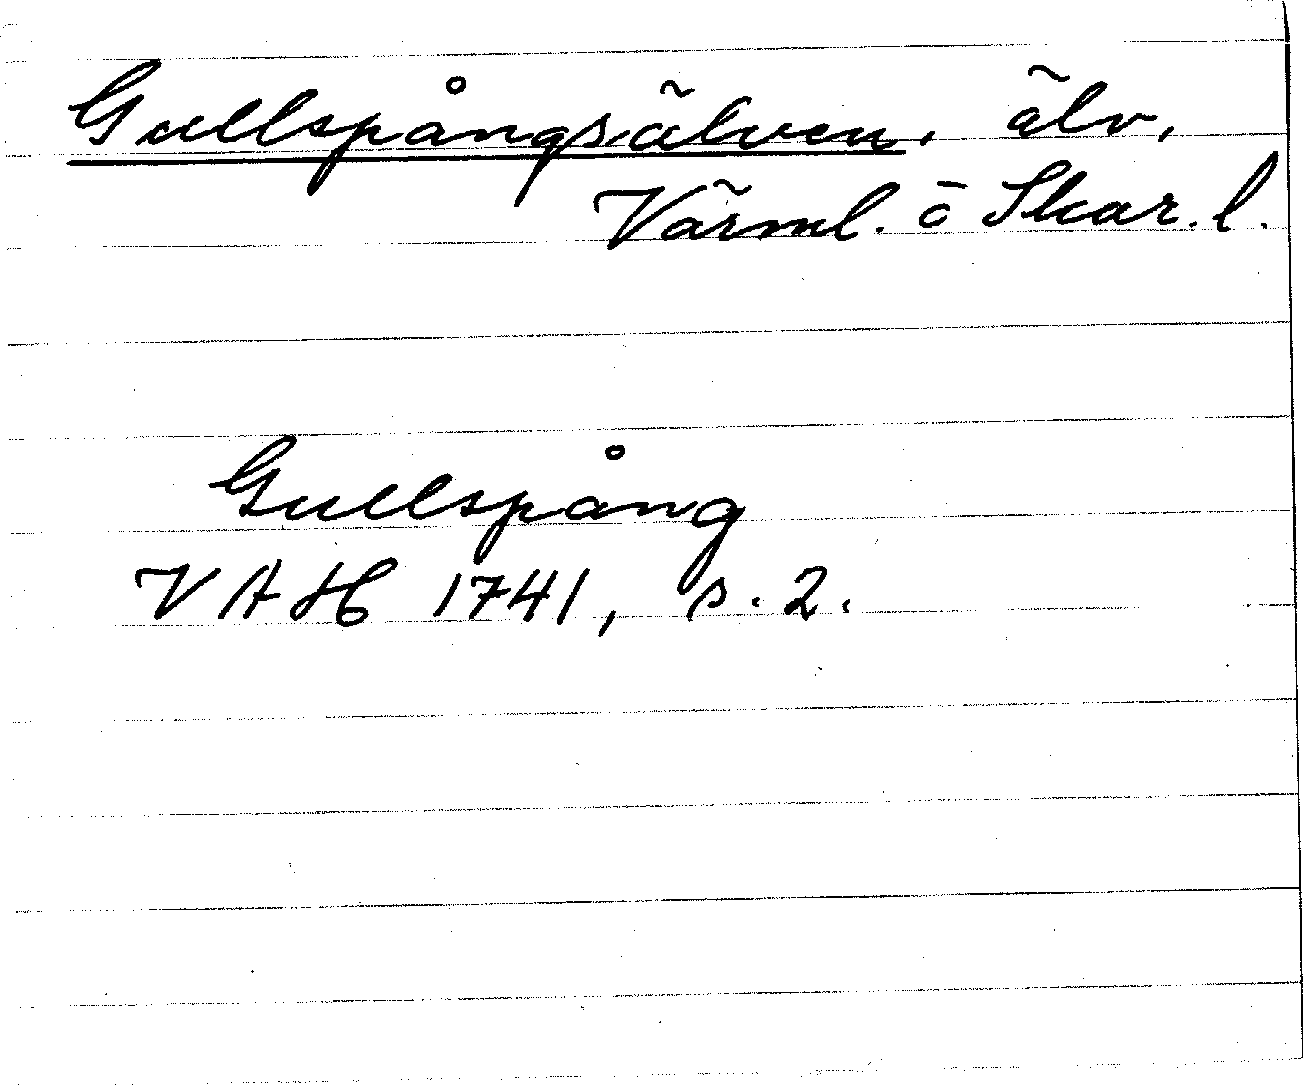 Gullspångsälven, älv,
Värml. o Skar. l.
Gullspång
VAH 1741, s. 2.